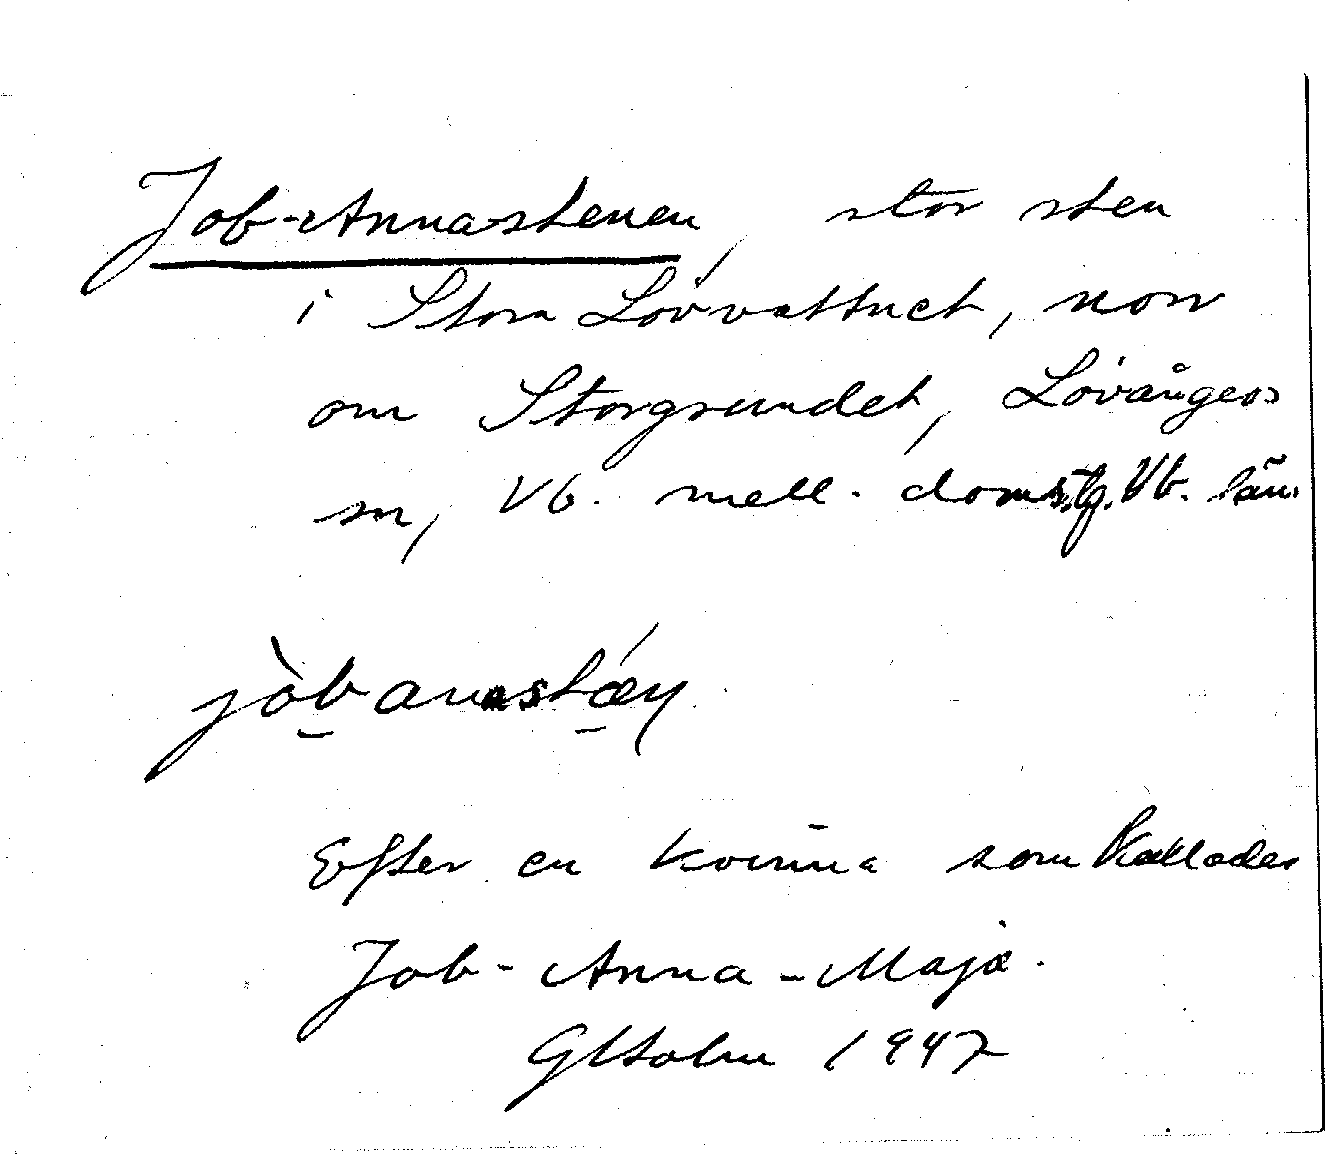 Job-Anna-stenen, stor sten
i Stora Lövvattnet, norr
om Storgrundet, Lövångers
sn, Vb. mell. doms.tg. Vb. län.
Efter en kvinna som kallades
Job-Anna-Maja.
1947